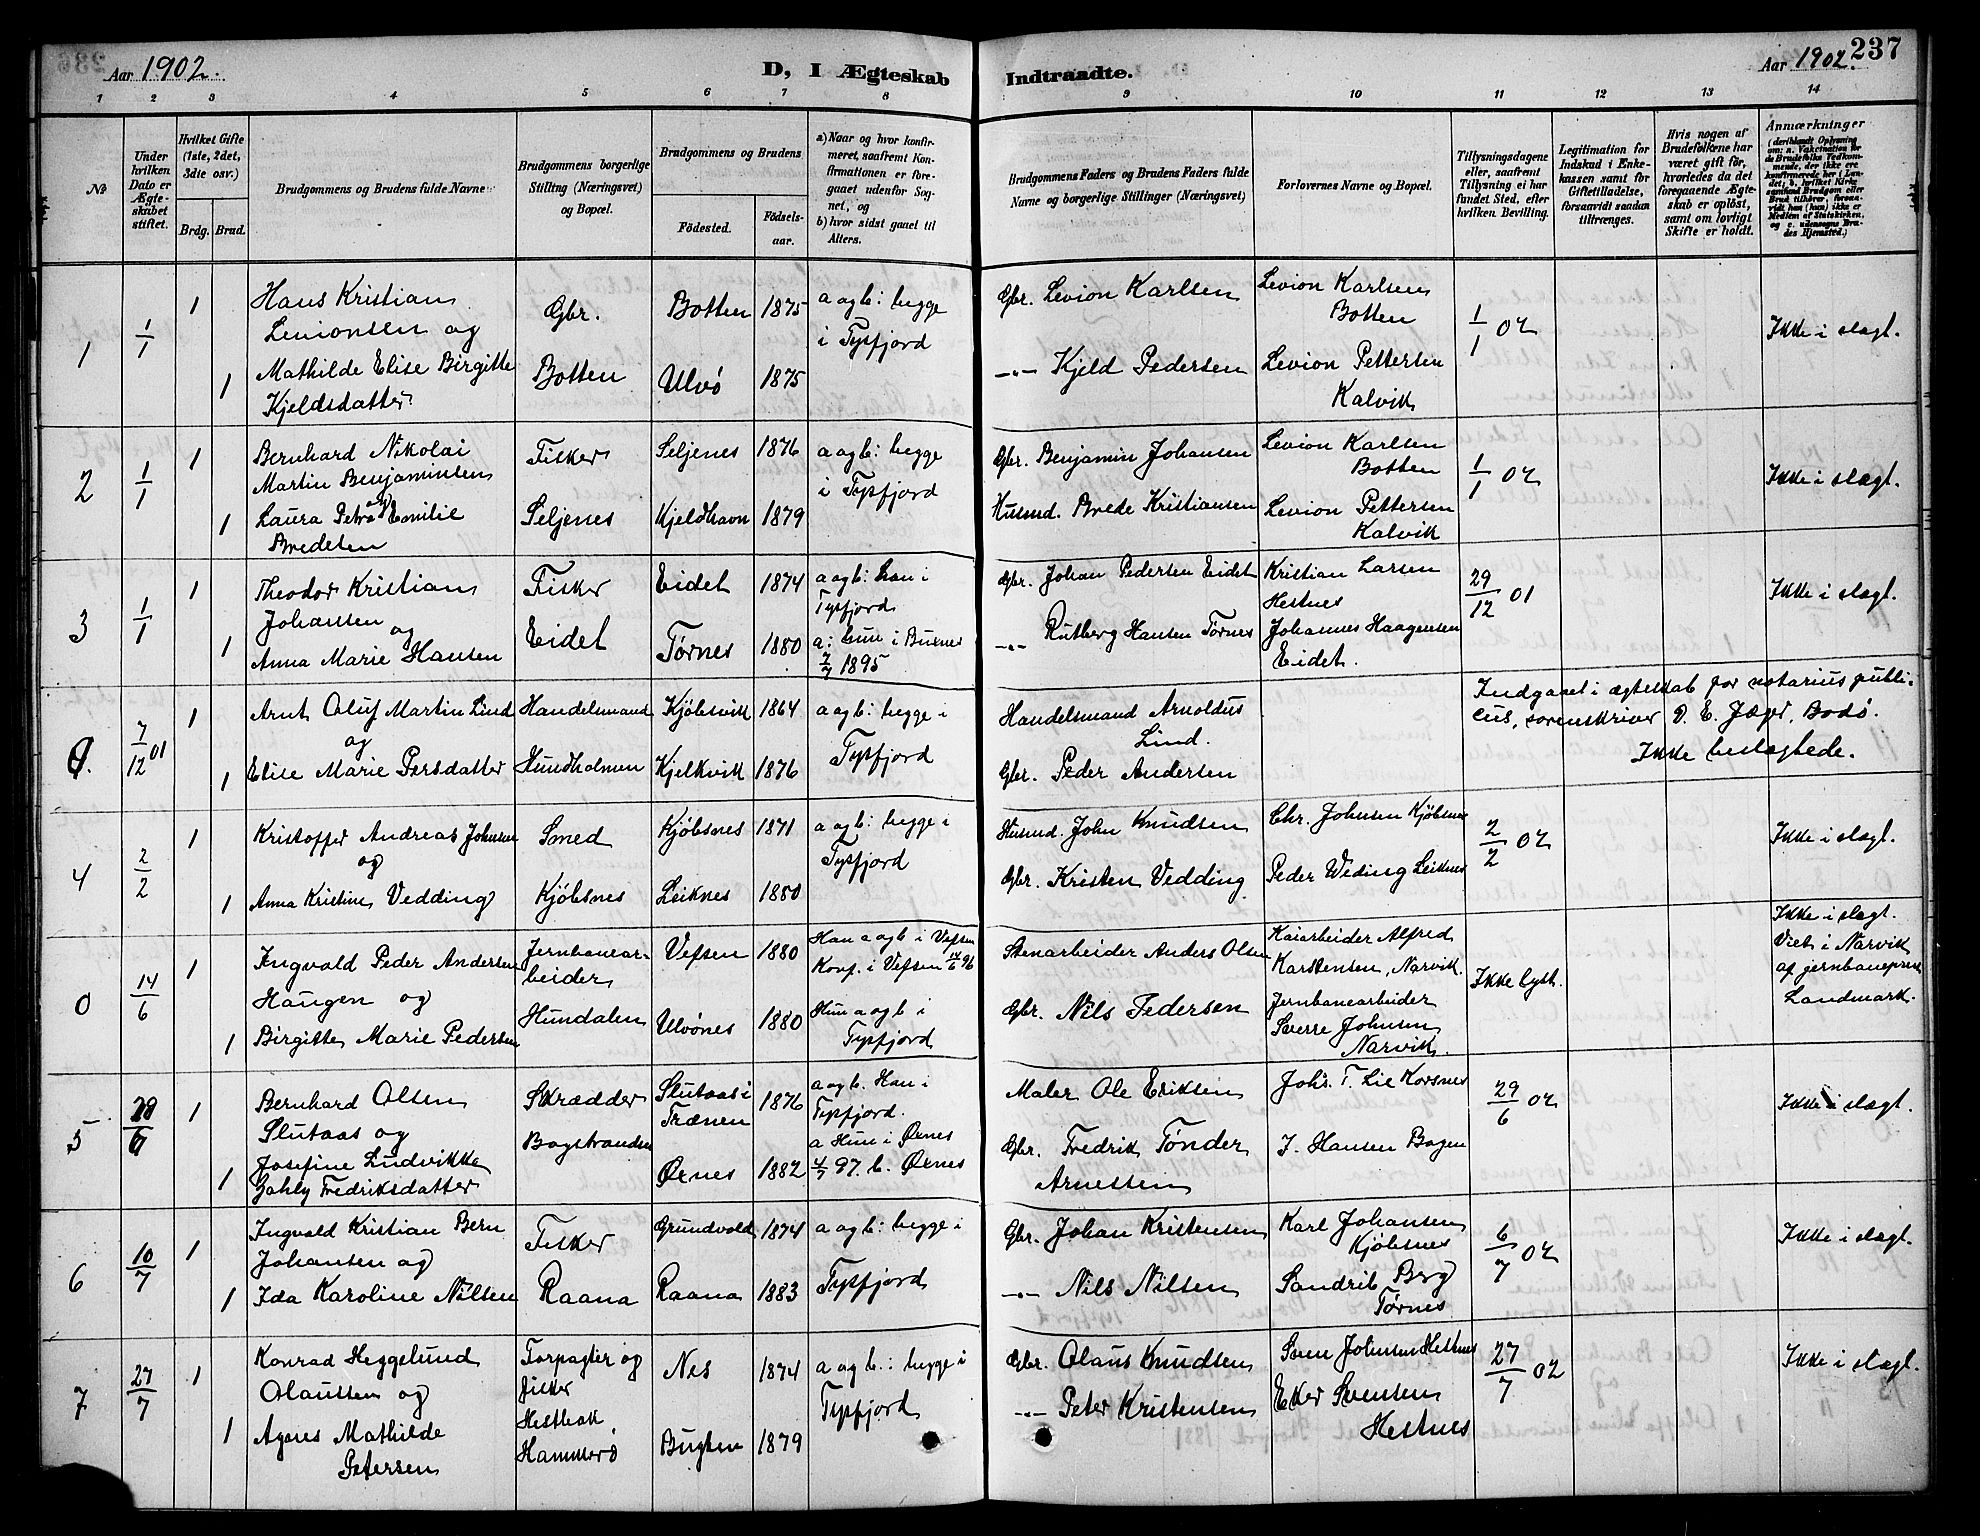 Aar 1902.
D, I Ægteskab Indtraadte.
Aar 1902. 237
1 2 3 4 5 6 7 8 9 10 11 12 13 14
№
Under hvilken Dato er Ægteskabet stiftet.
Hvilket Gifte (1ste, 2det, 3die osv.)
Brdg. Brud.
Brudgommens og Brudens fulde Navne
Brudgommens borgerlige Stilling (Næringsvei) og Bopæl.
Brudgommens og Brudens
Fødested.
Fødselsaar.
a) Naar og hvor konfirmeret, saafremt Konfirmationen er foregaaet udenfor Sognet, og
b) hvor sidst gaaet til Alters.
Brudgommens Faders og Brudens Faders fulde Navne og borgerlige Stillinger (Næringsvei)
Forlovernes Navne og Bopæl.
Tillysningsdagene eller, saafremt Tillysning ei har fundet Sted, efter hvilken Bevilling.
Legitimation for Indskud i Enkekassen samt for Giftetilladelse, forsaavidt saadan tiltrænges.
Hvis nogen af Brudefolkene har været gift før, hvorledes da det foregaaende Ægteskab er opløst, samt om lovligt Skifte er holdt.
Anmærkninger
(deriblandt Oplysning om: a. Vakcination for de Brudefolks Vedkommende, der ikke ere konfirmerede her i Landet; b. hvilket Kirkesamfund Brudgom eller Brud tilhører, forsaavidt han (hun) ikke er Medlem af Statskirken, og c. udensogns Brudes Hjemsted.)
1
1/1
1
1
Hans Kristian
Levionsen og
Mathilde Elise Birgitte
Kjeldsdatter
Gbr.
Botten
Botten 1875
Ulvø 1875
a og b: begge
i Tysfjord
Gbr. Levion Karlsen
—"— Kjeld Pedersen
Levion Karlsen
Botten
Levion Pettersen
Kalvik
1/1 02
Ikke i slægt.
2
1/1
1
1
Bernhard Nikolai
Martin Benjaminsen
og
Laura Petra Emilie
Bredesen
Fisker
Seljenes
Seljenes 1876
Kjeldhavn 1879
a og b: begge
i Tysfjord
Gbr. Benjamin Johansen
Husmd. Brede Kristiansen
Levion Karlsen
Botten
Levion Pettersen
Kalvik
1/1 02
Ikke i slægt.
3
1/1
1
1
Theodor Kristian
Johansen
og
Anna Marie Hansen
Fisker
Eidet
Eidet 1874
Tørnes 1880
a og b: han i
Tysfjord
a: hun i
1895
Gbr. Johan Pedersen Eidet
—"— Rutberg Hansen Tørnes
Kristian Larsen
Hestnes
Johannes Haagensen
Eidet.
29/12 01
Ikke i slægt.
7/12 01
1
1
Arnt Oluf Martin Lind
og
Elise Marie Persdatter
Handelsmand
Hundholmen
Kjøbsvik 1864
Kjelkvik 1876
a og b: begge i
Tysfjord
Handelsmand Arnoldus
Lind.
Gbr. Peder Andersen
Indgaaet i ægteskab for notarius publi-
cus, sorenskriver D. E. Jæger, Bodø.
Ikke beslægtede.
4
2/2
1
1
Kristoffer Andreas Johnsen
og
Anna Kristine Vedding
Smed
Kjøbsnes
Kjøbsnes 1871
Leiknes 1880
a og b: begge i
Tysfjord
Husmd. John Knudsen
Gbr. Kristen Vedding
Chr. Johnsen Kjøbsnes
Peder Weding Leiknes
2/2 02
Ikke i slægt.
0
14/6
1
1
Ingvald Peder Andersen
Haugen og
Birgitte Marie Pedersen
Jernbanear-
beider
Hundalen
Vefsen 1880
Ulvønes 1880
Han a og b i Vefsen
Konf. i Vefsen 14/6 96
Hun a og b i
Tysfjord
Stenarbeider Anders Olsen
Gbr. Nils Pedersen
Kaiarbeider Alfred
Karstensen, Narvik.
Jernbanearbeider
Sverre Johnsen
Narvik.
Ikke lyst.
Ikke i slægt.
Viet i Narvik
af jernbaneprest
Landmark.
5
29/6
1
1
Bernhard Olsen
Slutaas og
Josefine Ludvikke
Hahly Fredriksdatter
Skrædder
Bogstranden
Slutaas i
Trænen 1876
Ørnes 1882
a og b. Han i
Tysfjord.
a Hun i Ørnes
4/7 97 b. Ørnes
Maler Ole Eriksen
Gbr. Fredrik Tønder
Arnessen
Johs. T. Lie Korsnes
J. Hansen Bogen
29/6 02
Ikke i slægt.
6
10/7
1
1
Ingvald Kristian Bern
Johansen og
Ida Karoline Nilsen
Fisker
Raana
Grundvold 1874
Raana 1883
a og b: begge i
Tysfjord
Gbr. Johan Kristensen
—"— Nils Nilsen
Karl Johansen
Kjøbsnes
Sandrib Berg
Tørnes
6/7 02
Ikke i slægt.
7
27/7
1
1
Konrad Heggelund
Olaussen og
Agnes Mathilde
Petersen
Forpagter og
fisker
Hestbak
Hammerø
Nes 1874
Bugten 1879
a og b.: begge i
Tysfjord
Gbr. Olaus Knudsen
—"— Peter Kristensen
Sven Johnsen Hestnes
Eker Svensen
Hestnes
27/7 02
Ikke i slægt.